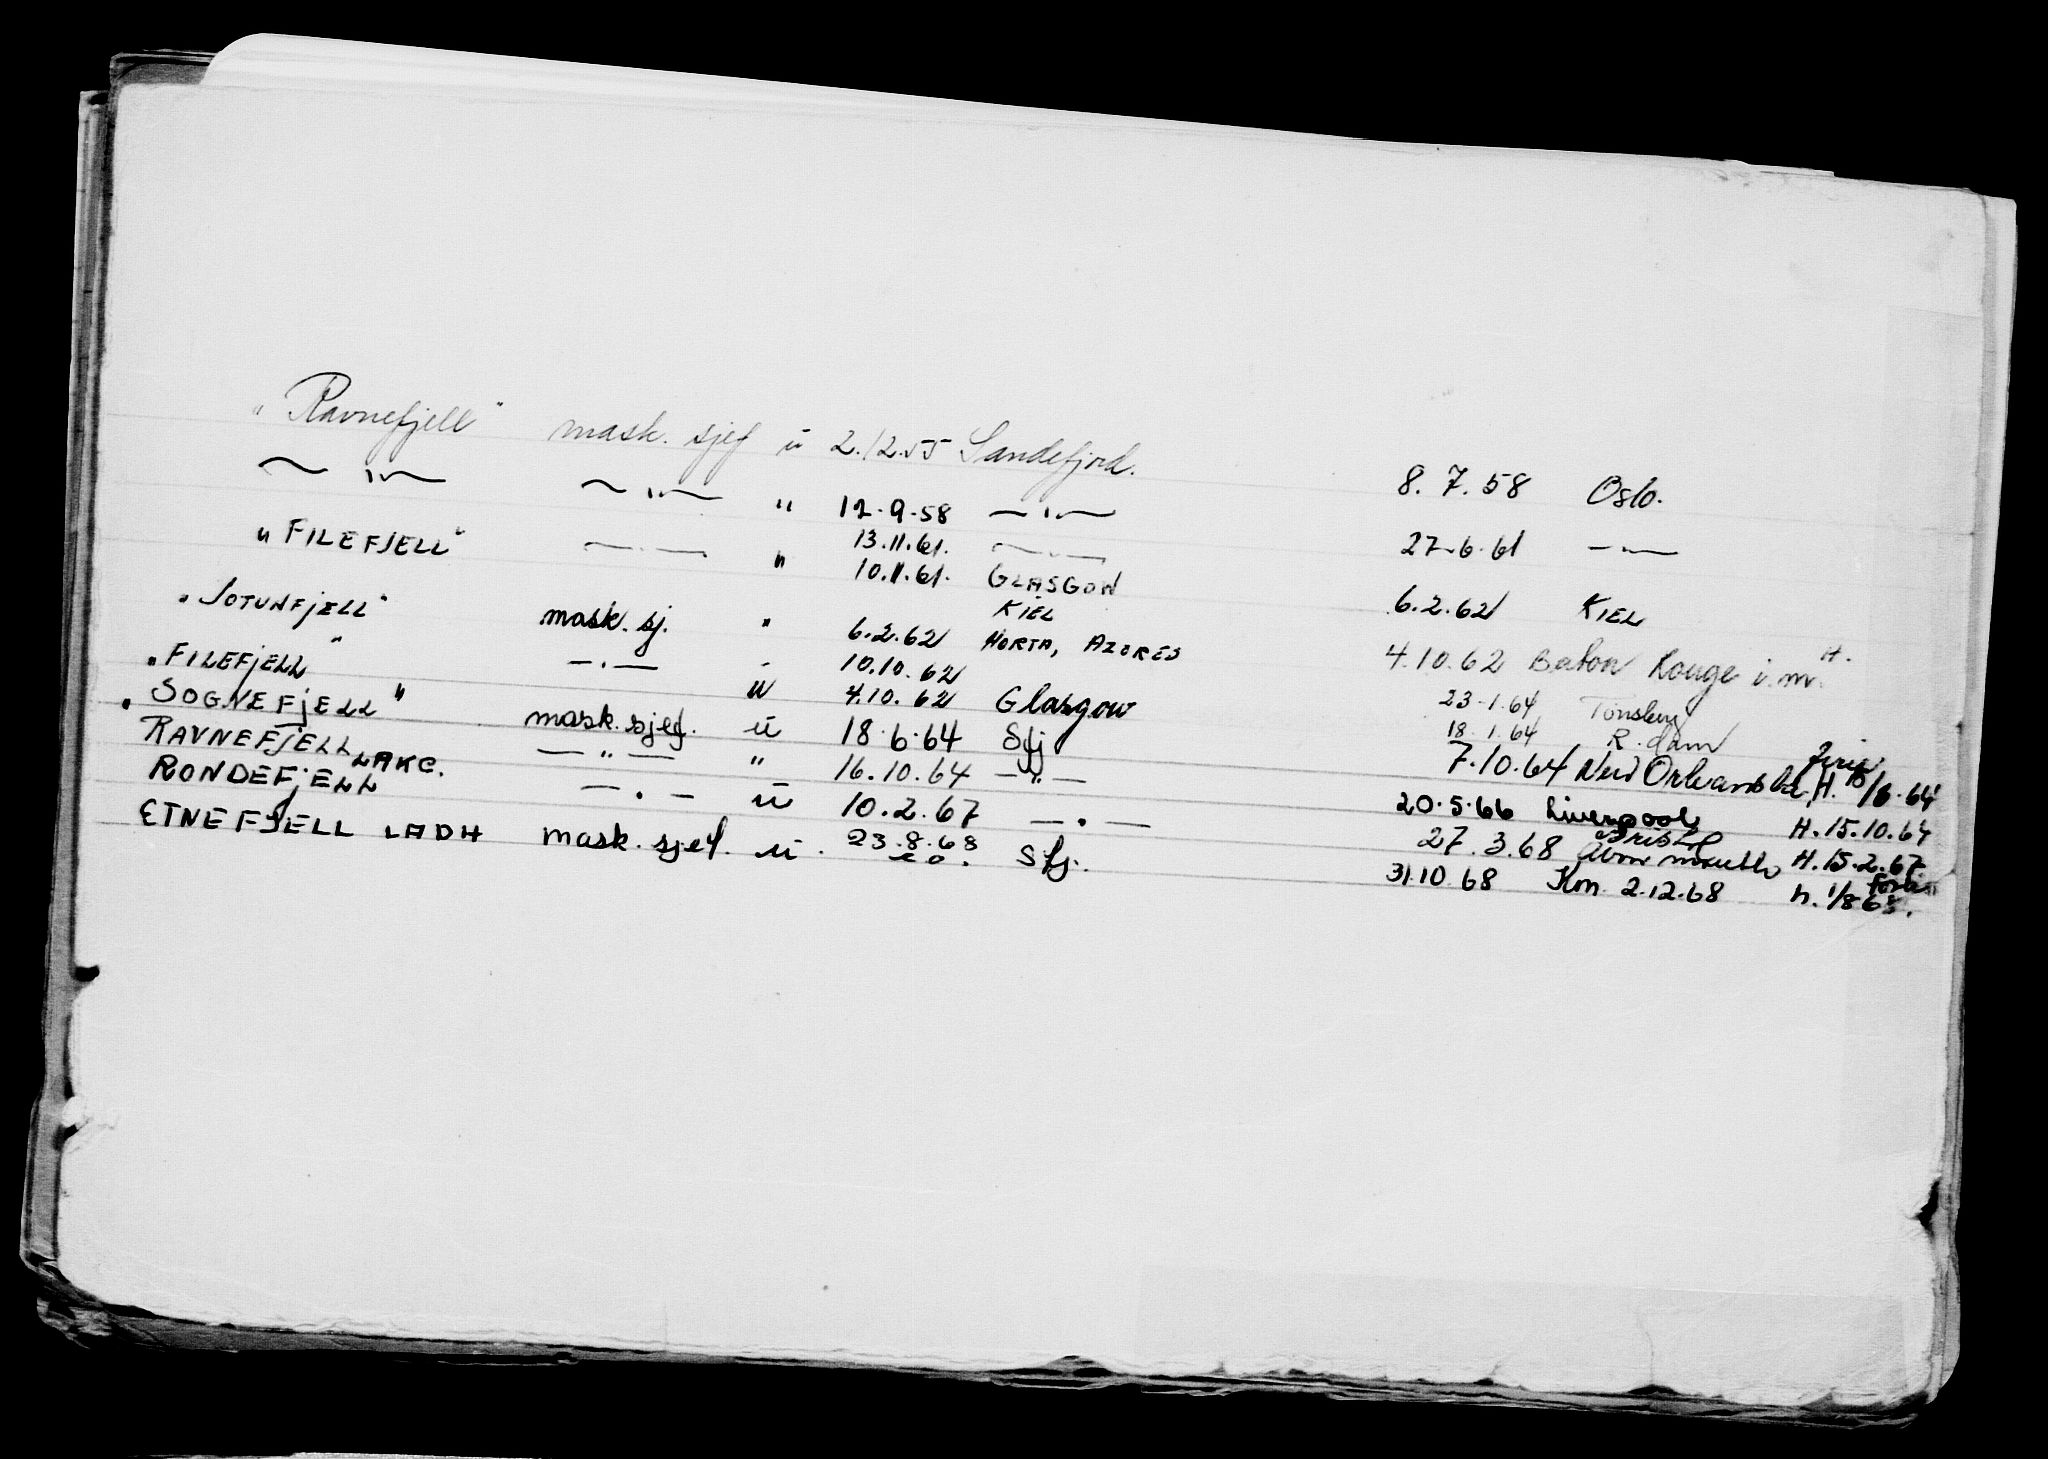 "Ravnefjell" mask. sjef u 2.12.55 Sandefjord. 8.7.58 Oslo.
— " — — " — " 12.9.58 — " — 27.6.61 — " —
"FILEFJELL" — " — " 13.11.61. — " —
10.11.61. GLASGOW 6.2.62 KIEL
"JOTUNFJELL" mask. sj. " 6.2.62 KIEL 4.10.62 Baton Rouge i.m. H.
"FILEFJELL" — " — " 10.10.62 HORTA, AZORES 23.1.64 Tönsberg
"SOGNEFJELL" u 4.10.62 Glasgow 18.1.64 R.dam
RAVNEFJELL mask. sjef. u 18.6.64 Sfj 7.10.64 New Orleans La. H. 15/6.64 Ferie
LAKC. — " — " 16.10.64 — " — 20.5.66 Liverpool H. 15.10.64
RONDEFJELL — " — u 10.2.67 — " — 27.3.68 Bristol Avonmouth H. 15.2.67.
ETNEFJELL LADH mask. sjef. u. 23.8.68 Sfj. 31.10.68 Kon. 2.12.68 h. 1/8 68.